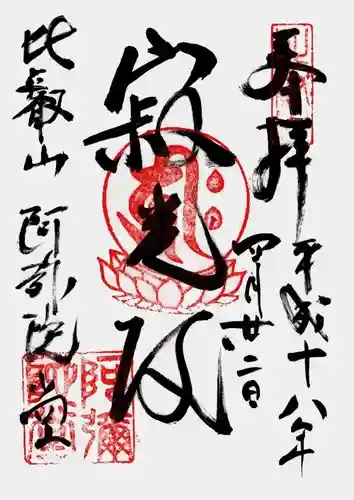 奉拝
平成十八年
四月廿二日
寂光殿
比叡山 阿弥陀堂